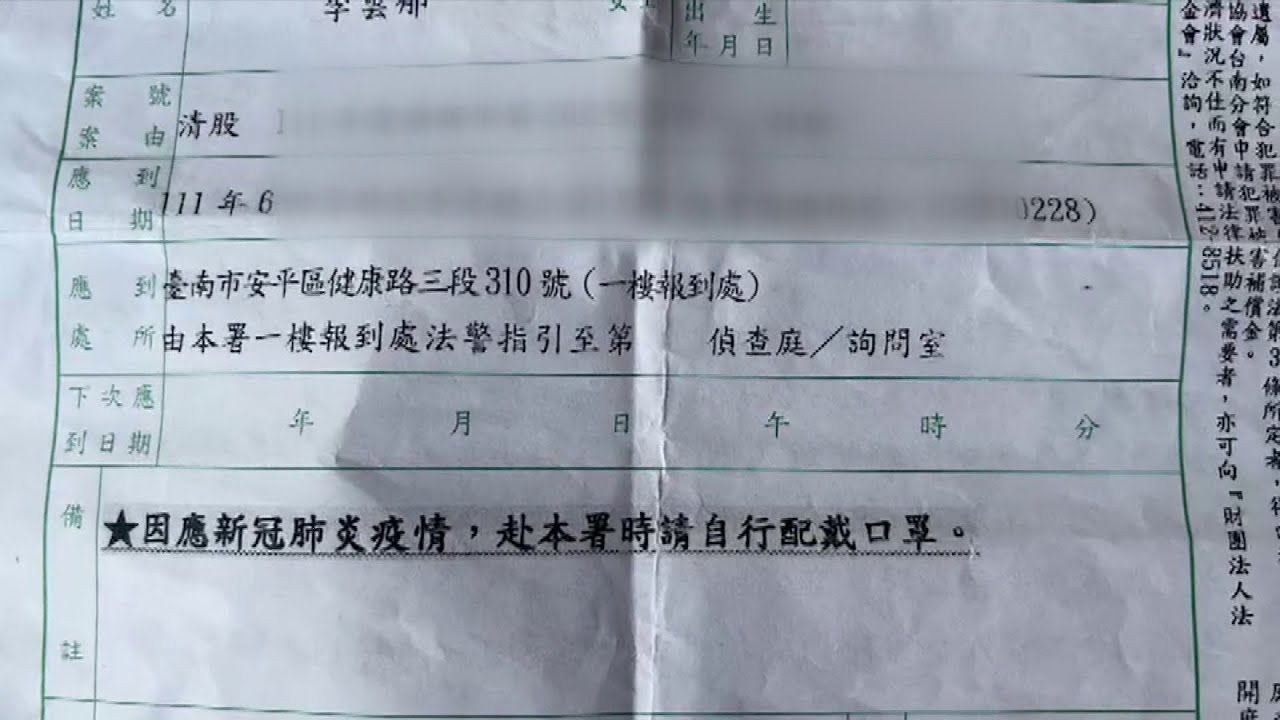 姓名 李雲 女士 出生年月日
案號
案由 清股
應到日期 111年6 0228)
應到處所 臺南市安平區健康路三段310號(一樓報到處)
由本署一樓報到處法警指引至第 偵查庭/詢問室
下次應到日期 年 月 日 午 時 分
備註 ★因應新冠肺炎疫情,赴本署時請自行配戴口罩。
遺屬,如符合犯罪被害
協會台南分會申請犯罪被害補償金。
濟狀況不佳而有申請法律扶助之需要者,亦可向『財團法人法
金會』洽詢,電話:4128518。
開庭